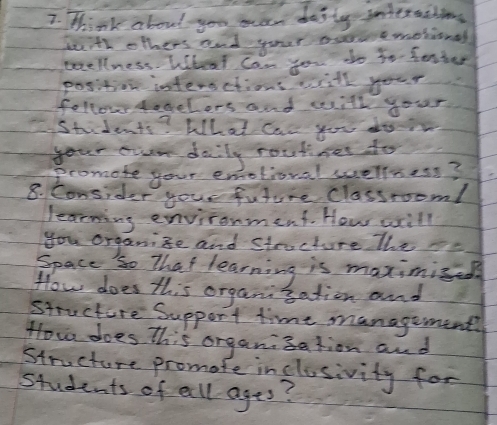 7. Think about you own daily interactions
with others and your own emotional
wellness. What can you do to foster
position interactions with your
fellow teachers and with your
Students? What can you do in
your own daily routines to
promote your emotional wellness?
8. Consider your future classroom/
learning environment. How will
you organize and structure the
Space so That learning is maximized?
How does this organization and
Structure Support time management?
How does This organization and
Structure promote inclusivity for
Students of all ages?